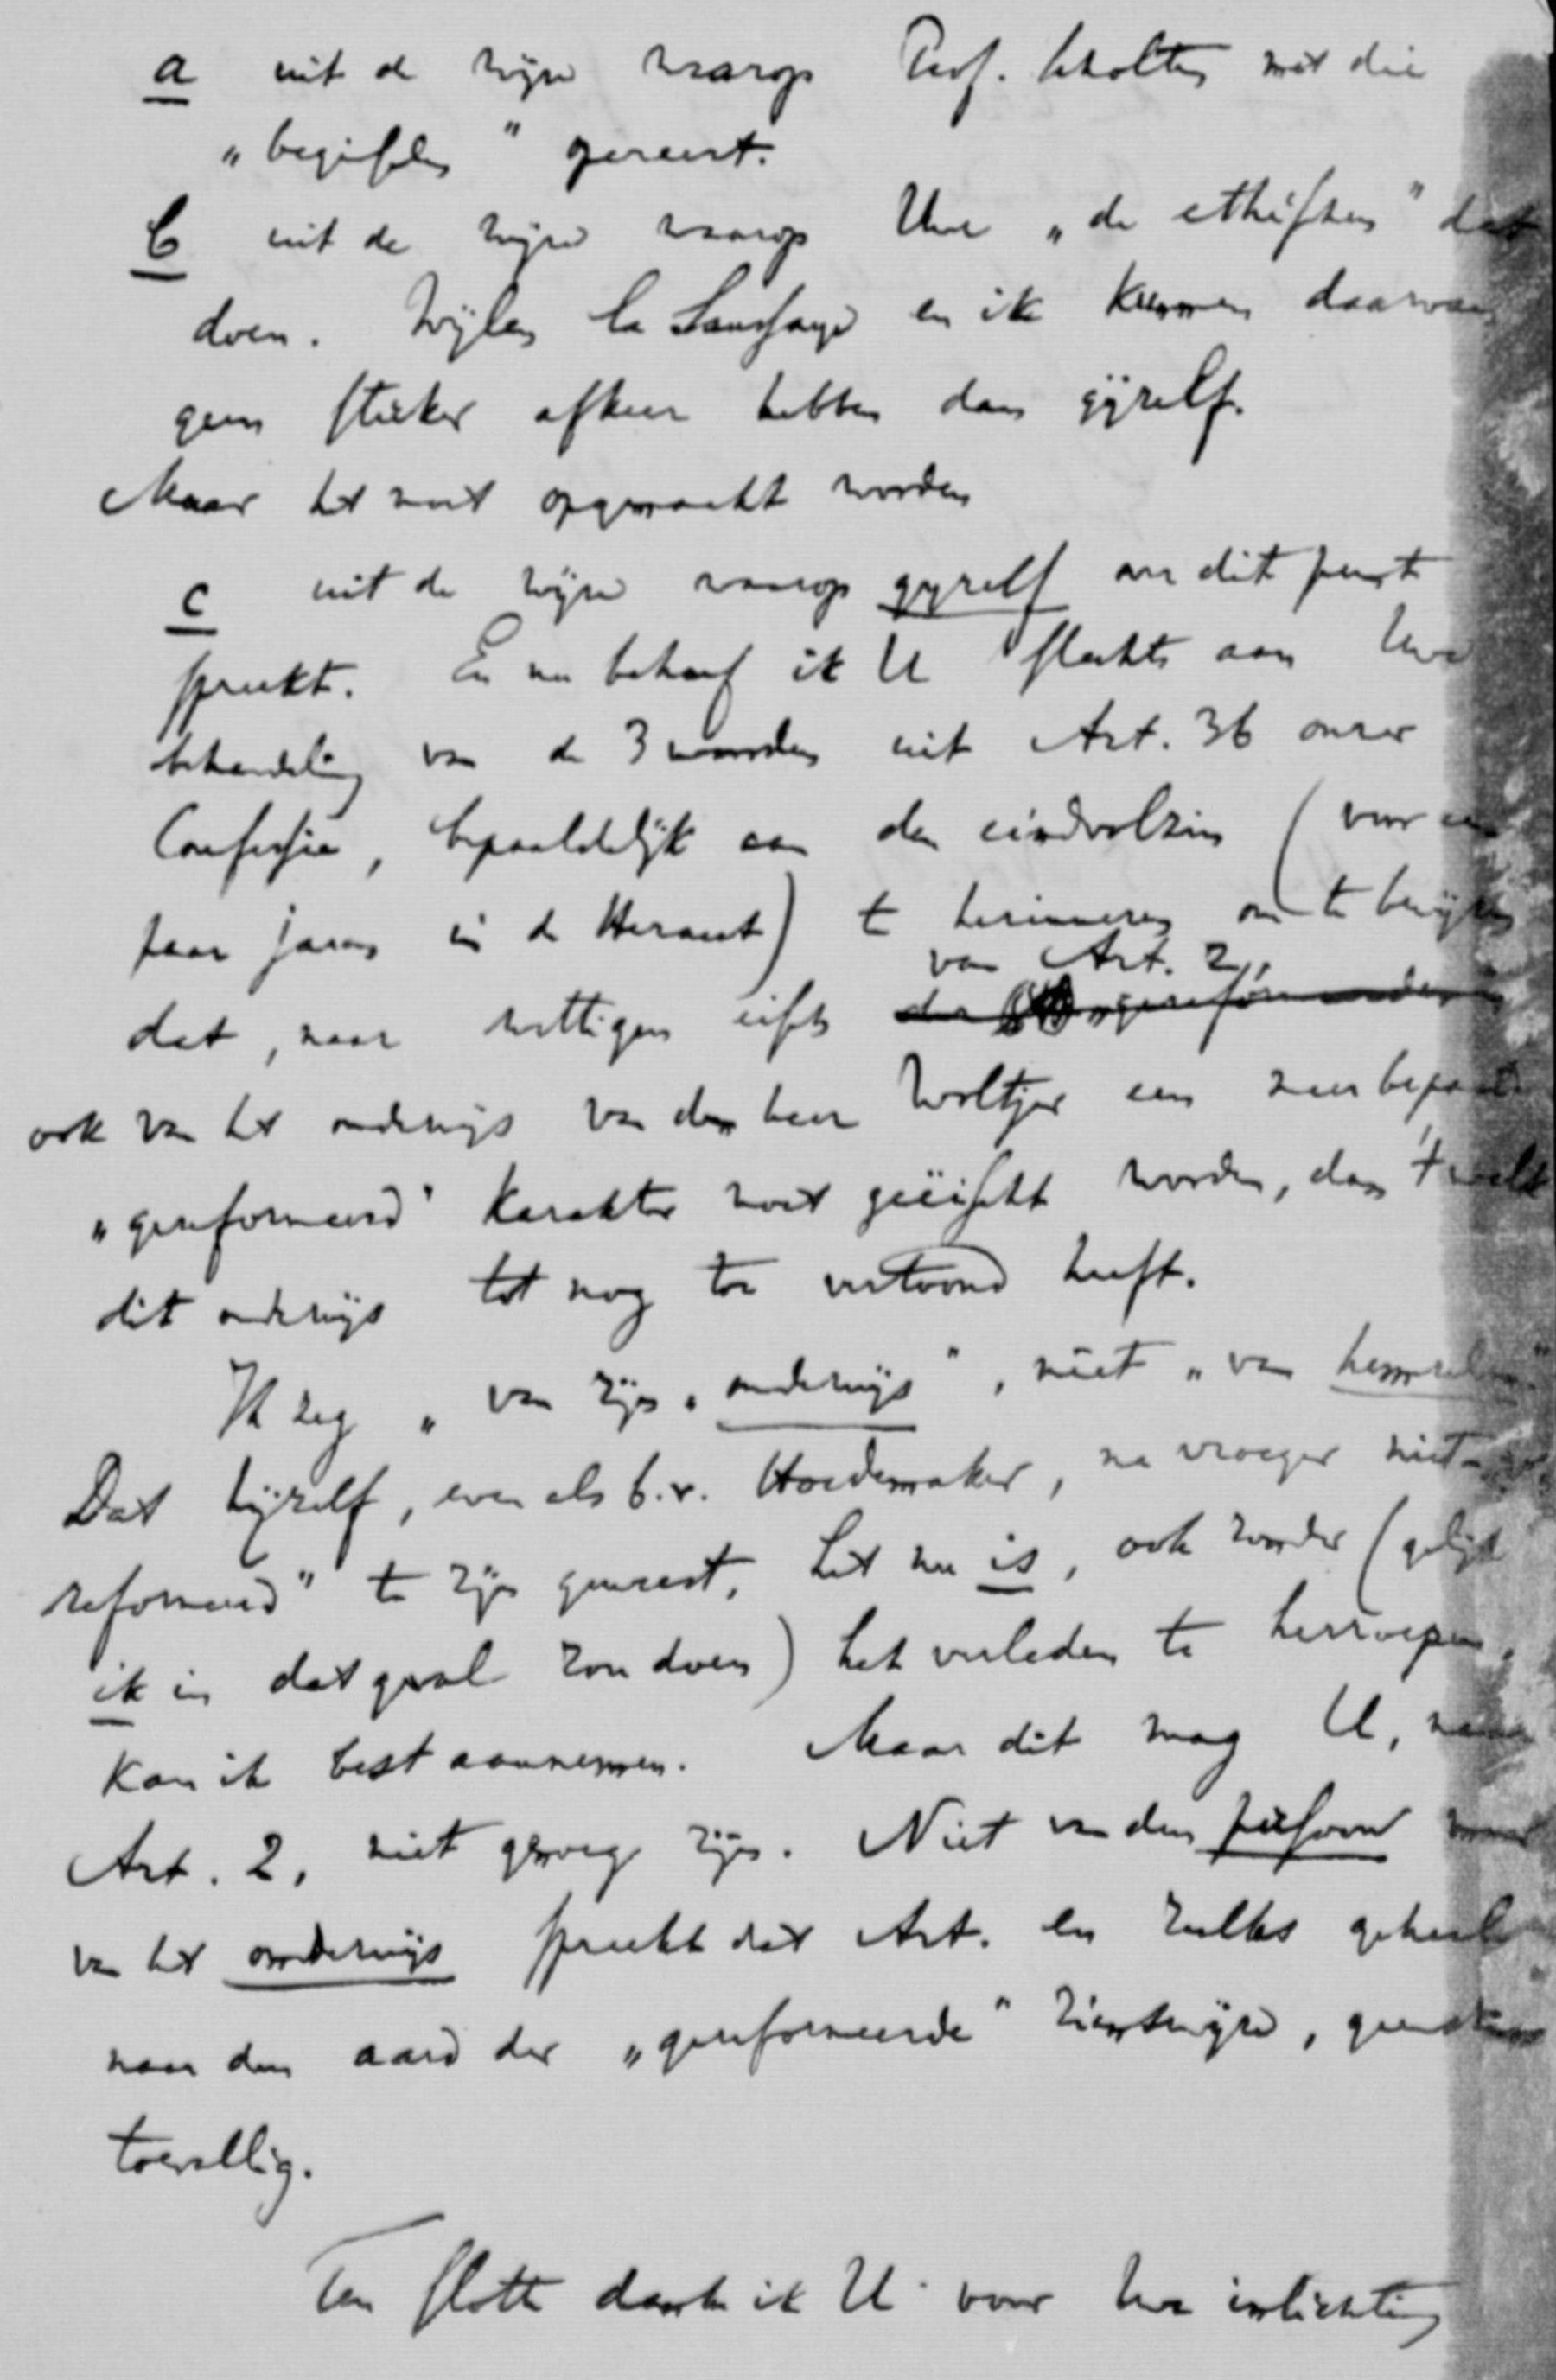 a uit de wijze waarop Prof. Scholten met die
„beginselen" opereert.
b uit de wijze waarop Uwe „de ethischen" dat
doen. Wijlen la Saussaye en ik kunnen daarvan
geen sterker afkeer hebben dan gijzelf.
Maar het moet opgemaakt worden
c uit de wijze waarop gijzelf over dit punt
spreekt. En nu behoef ik U slechts aan Uwe
behandeling van de 3 woorden uit Art. 36 onzer
Confessie, bepaaldelijk aan den eindvolzin (voor een
paar jaren in de Heraut) te herinneren om te begrijpen
van Art. 2,
dat, naar wettigen eisch der gereformeerden
ook van het onderwijs van den heer Woltjer een meer bepaald
„gereformeerd" karakter moet geëischt worden, dan 't welk
dit onderwijs tot nog toe vertoond heeft.
Ik zeg „van zijn „onderwijs", niet „van hemzelven"
Dat hijzelf, even als b.v. Hoedemaker, na vroeger niet-„ge
reformeerd" te zijn geweest, het nu is, ook zonder (gelijk
ik in dat geval zou doen) het verleden te herroepen,
kan ik best aannemen. Maar dit mag U, naar
Art. 2, niet genoeg zijn. Niet van den persoon maar
van het onderwijs spreekt dat Art. en zulks geheel
naar den aard der „gereformeerde" zienswijze, geenszins
toevallig.
Ten slotte dank ik U voor Uwe inlichting